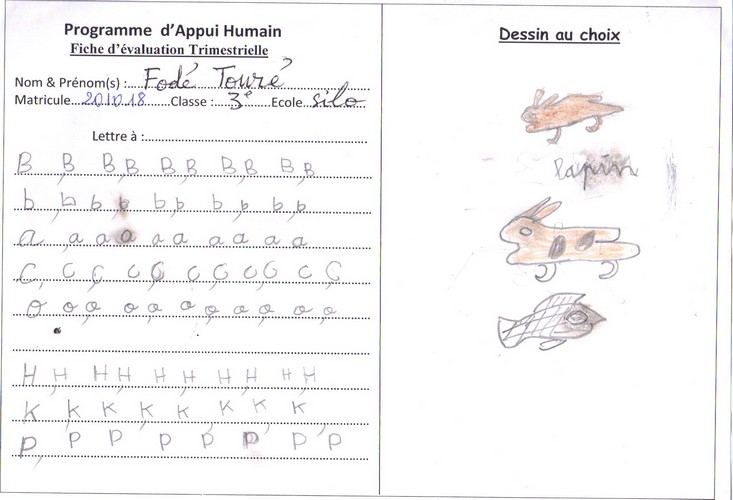 Programme d'Appui Humain
Fiche d'évaluation Trimestrielle
Nom & Prénom(s) : Fodé Touré
Matricule 201018 Classe : 3e Ecole silo
Lettre à :
B B B B B B B B B B
b b b b b b b b b b
a a a a a a a a a a
C C C C C C C C C C C
o o o o o o o o o o o
H H H H H H H H H H
K K K K K K K K
P P P P P P P P
Dessin au choix
lapin